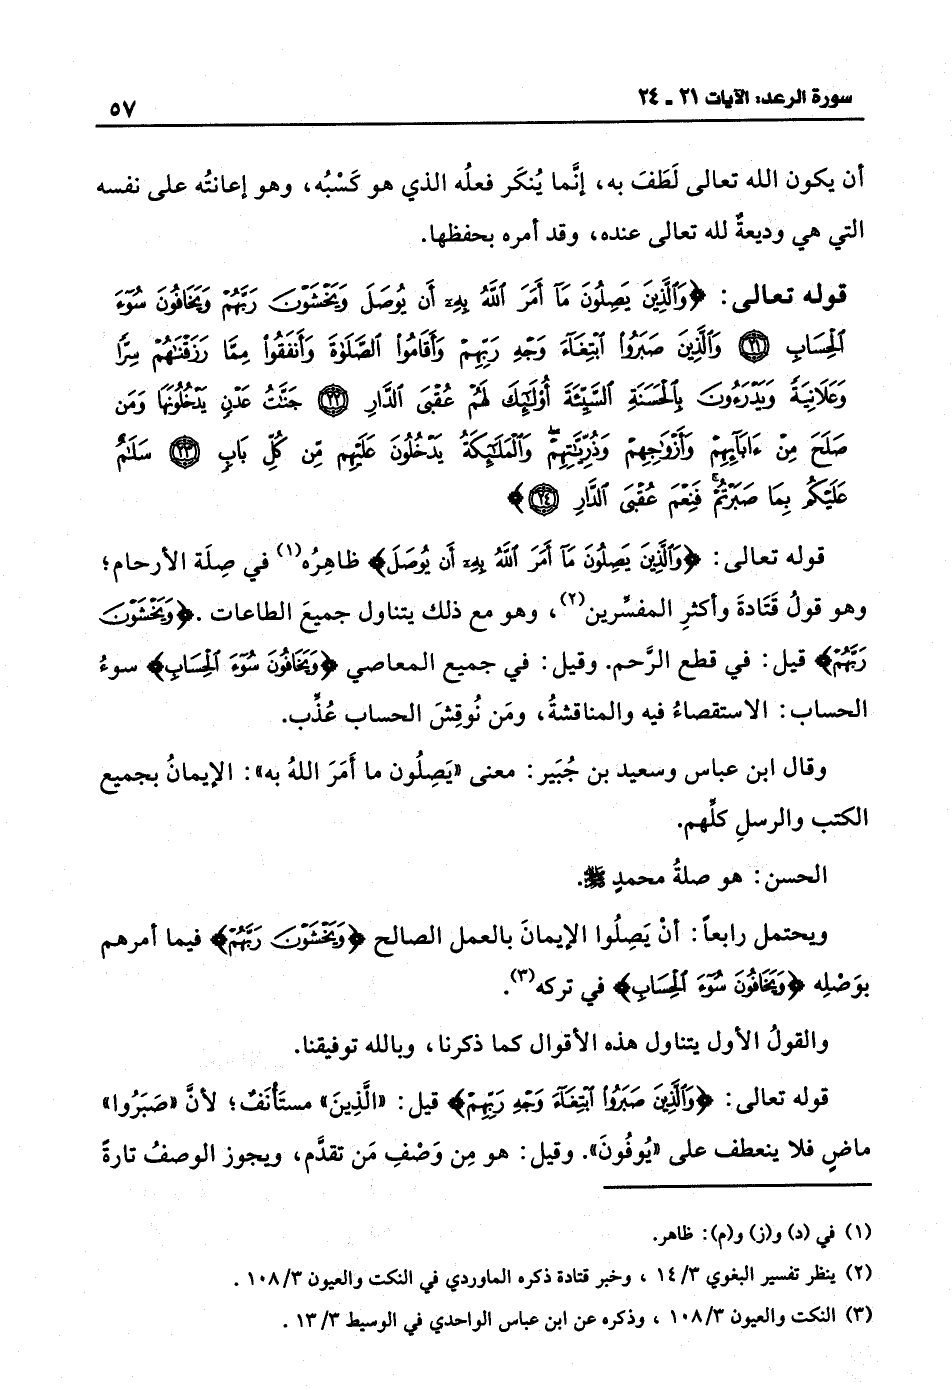 سورة الرعد: الآيات ٢١ - ٢٤
٥٧
أن يكون الله تعالى لَطَفَ به، إنَّما يُنكَر فعلُه الذي هو كَسْبُه، وهو إعانتُه على نفسه
التي هي وديعةٌ لله تعالى عنده، وقد أمره بحفظها.
قوله تعالى: ﴿وَالَّذِينَ يَصِلُونَ مَآ أَمَرَ اللَّهُ بِهِۦٓ أَن يُوصَلَ وَيَخْشَوْنَ رَبَّهُمْ وَيَخَافُونَ سُوٓءَ
الْحِسَابِ ۝٢١ وَالَّذِينَ صَبَرُوا ابْتِغَآءَ وَجْهِ رَبِّهِمْ وَأَقَامُوا الصَّلَوٰةَ وَأَنفَقُوا مِمَّا رَزَقْنَٰهُمْ سِرًّا
وَعَلَانِيَةً وَيَدْرَءُونَ بِالْحَسَنَةِ السَّيِّئَةَ أُولَٰٓئِكَ لَهُمْ عُقْبَى الدَّارِ ۝٢٢ جَنَّٰتُ عَدْنٍ يَدْخُلُونَهَا وَمَن
صَلَحَ مِنْ ءَابَآئِهِمْ وَأَزْوَٰجِهِمْ وَذُرِّيَّٰتِهِمْ ۖ وَالْمَلَٰٓئِكَةُ يَدْخُلُونَ عَلَيْهِم مِّن كُلِّ بَابٍ ۝٢٣ سَلَٰمٌ
عَلَيْكُم بِمَا صَبَرْتُمْ ۚ فَنِعْمَ عُقْبَى الدَّارِ ۝٢٤﴾
قوله تعالى: ﴿وَالَّذِينَ يَصِلُونَ مَآ أَمَرَ اللَّهُ بِهِۦٓ أَن يُوصَلَ﴾ ظاهِرُه(١) في صِلَة الأرحام؛
وهو قولُ قَتَادةَ وأكثرِ المفسِّرين(٢)، وهو مع ذلك يتناول جميعَ الطاعات. ﴿وَيَخْشَوْنَ
رَبَّهُمْ﴾ قيل: في قطع الرَّحم. وقيل: في جميع المعاصي ﴿وَيَخَافُونَ سُوٓءَ الْحِسَابِ﴾ سوءُ
الحساب: الاستقصاءُ فيه والمناقشةُ، ومَن نُوقِشَ الحساب عُذِّب.
وقال ابن عباس وسعيد بن جُبَير: معنى «يَصِلُون ما أَمَرَ اللهُ به»: الإيمانُ بجميع
الكتب والرسلِ كلِّهم.
الحسن: هو صلةُ محمدٍ ﷺ.
ويحتمل رابعاً: أنْ يَصِلُوا الإيمانَ بالعمل الصالح ﴿وَيَخْشَوْنَ رَبَّهُمْ﴾ فيما أمرهم
بوَصْلِه ﴿وَيَخَافُونَ سُوٓءَ الْحِسَابِ﴾ في تركه(٣).
والقولُ الأول يتناول هذه الأقوال كما ذكرنا، وبالله توفيقنا.
قوله تعالى: ﴿وَالَّذِينَ صَبَرُوا ابْتِغَآءَ وَجْهِ رَبِّهِمْ﴾ قيل: «الَّذِينَ» مستأنَفٌ؛ لأنَّ «صَبَرُوا»
ماضٍ فلا ينعطف على «يُوفُونَ». وقيل: هو مِن وَصْفِ مَن تقدَّم، ويجوز الوصفُ تارةً
(١) في (د) و(ز) و(م): ظاهر.
(٢) ينظر تفسير البغوي ٣/ ١٤ ، وخبر قتادة ذكره الماوردي في النكت والعيون ٣/ ١٠٨ .
(٣) النكت والعيون ٣/ ١٠٨ ، وذكره عن ابن عباس الواحدي في الوسيط ٣/ ١٣ .